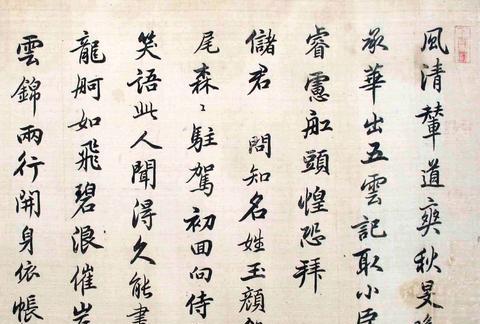 風清輦道爽秋旻
承華出五雲記取小臣
睿慮舡頭惶恐拜
儲君 問知名姓玉顏
尾森〻駐駕初回向侍
笑語此人聞得久能書
龍舸如飛碧浪催岩
雲錦兩行開身依帳